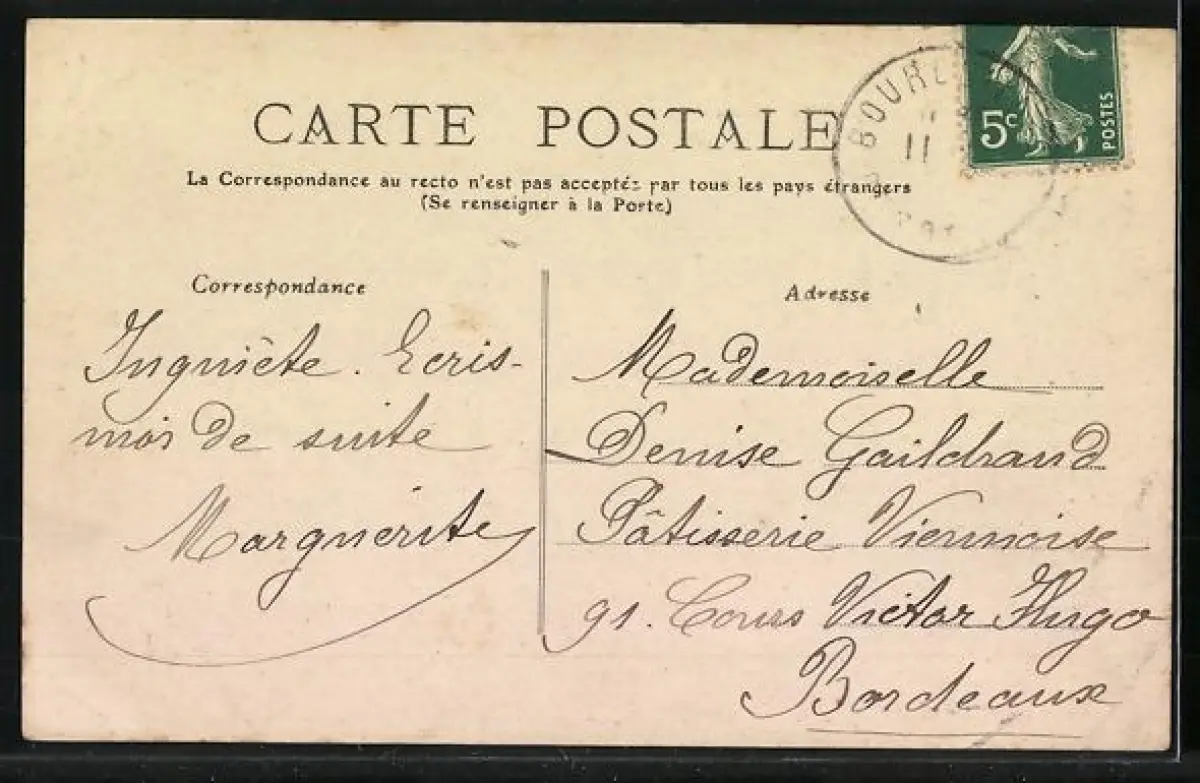 CARTE POSTALE
5c
POSTES
11
La Correspondance au recto n'est pas acceptée par tous les pays étrangers
(Se renseigner à la Poste)
Correspondance
Inquiète. Ecris-
moi de suite
Marguerite
Adresse
Mademoiselle
Denise Gaildraud
Pâtisserie Viennoise
91. Cours Victor Hugo
Bordeaux